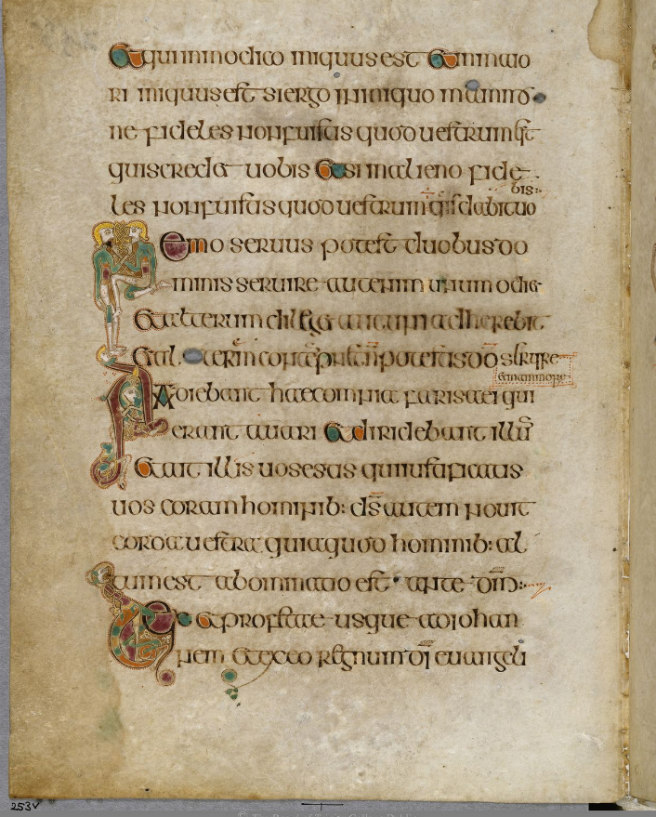 Et qui in modico iniquus est Et in maio
ri iniquus est si ergo in iniquo mamino
ne fideles non fuistis quod uestrum est
quis credet uobis Et si in alieno fide
bis:
les non fuistis quod uestrum quis dabit uo
Nemo seruus potest duobus do
minis seruire aut enim unum odiet
Et alterum diliget aut uni adherebit
Et al terum potestis dō seruire
et mamone
Audiebant haec omnia farisaei qui
erant auari Et diridebant illū
Et ait illis uos estis qui iustificatis
uos coram hominib: dꞩ autem nouit
corda uestra quia quod hominib: al
tum est abominatio est ante dm̄:
Lex et profetae usque ad iohan
nem et ex eo regnum dī euangeli
253v